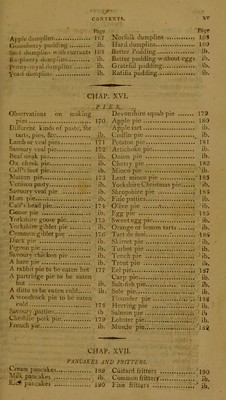 CONTENTS. XV
Page
Apple dumplins 167
Gooseberry pudding ib.
Suet dumplins with currants 168
Raspberry dumplins ib.
Penny-royal dumplins ib.
Yeast dumplins ib.
Page
Norfolk dumplins 168
Hard dumplins 169
Batter Pudding ib.
Batter pudding without eggs ib.
Grateful pudding ib.
Ratifia pudding ib.
CHAP. XVI.
PIES.
Observations on making
pies 170
Different kinds of paste, for
tarts, pies, &c. ib.
Lamb or veal pies 171
Savoury veal pie 172
Beef steak pie ib.
Ox cheek pie ib.
Calf's foot pie ib.
Mutton pie 173
Venison pasty ib.
Savoury veal pie ib.
Ham pie ib.
Calf's head pie 174
Goose pie ib.
Yorkshire goose pie 175
Yorkshire giblet pie ib.
Common giblet pie 176
Duck pie ib.
Pigeon pie ib.
Savoury chicken pie ib.
A hare pie ib.
A rabbit pie to be eaten hot 177
A partridge pie to be eaten
hot ib.
A ditto to be eaten cold ib.
A woodcock pie to be eaten
cold 178
Savoury patties ib.
Cheshire pork pie 179
French pie ib.
Devonshire squab pie 179
Apple pie 180
Apple tart ib.
Codlin pie ib.
Potatoe pie 181
Artichoke pie ib.
Onion pie ib.
Cherry pie 182
Mince pie ib.
Lent mince pies 183
Yorkshire Christmas pie ib.
Shropshire pie 184
Fine patties ib.
Olive pie ib.
Egg pie 185
Sweet egg pie ib.
Orange or lemon tarts ib.
Tart de moi 186
Skirret pie ib.
Turbot pie ib.
Tench pie ib.
Trout pie ib.
Eel pie 187
Carp pie ib.
Salt-fish pie ib.
Sole pie ib.
Flounder pie 188
Herring pie ib.
Salmon pie ib.
Lobster pie ib.
Muscle pie 189
CHAP. XVII.
PANCAKES AND FRITTERS.
Cream pancakes 189
Milk pancakes ib.
pancakes 190
Custard fritters 190
Common fritters ib.
Fine fritters ib.